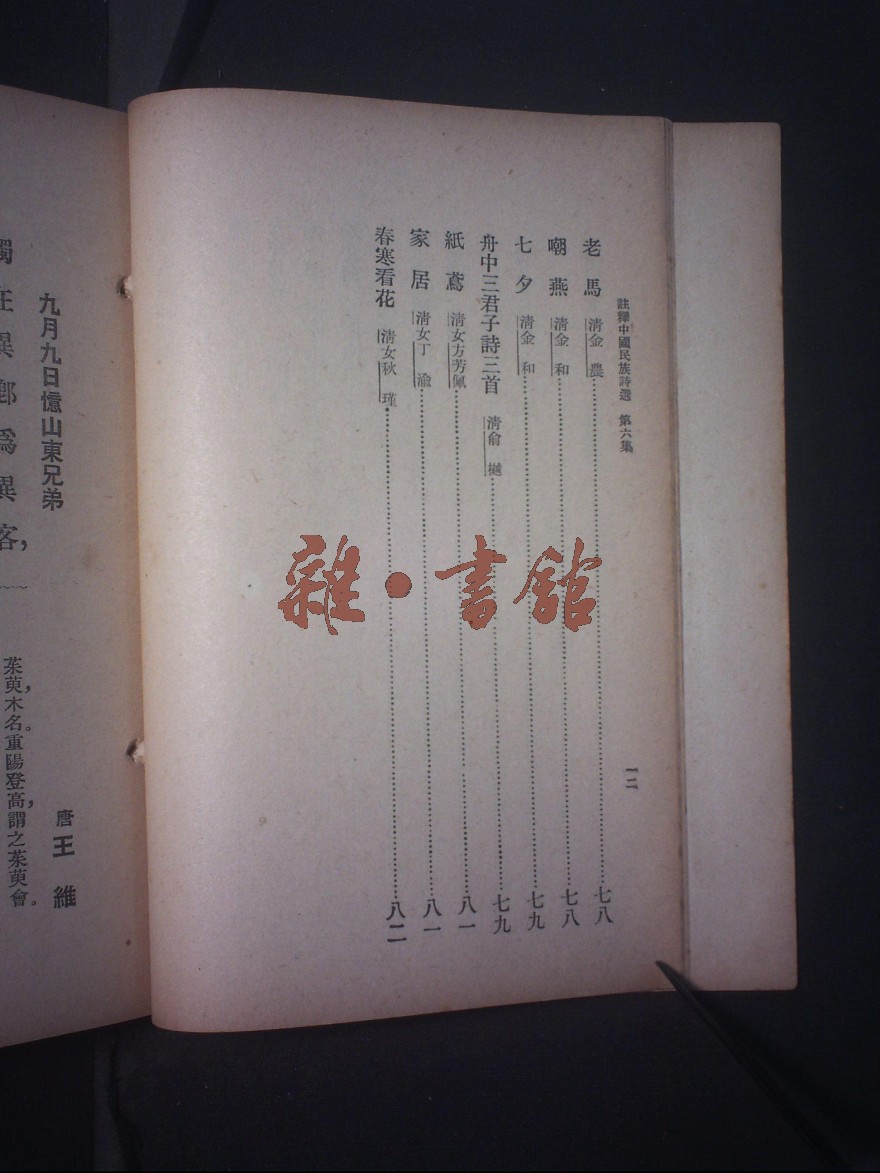 註釋中國民族詩選 第六集
一二
老馬 清金農……七八
嘲燕 清金和……七八
七夕 清金和……七九
舟中三君子詩三首 清俞樾……七九
紙鳶 清女方芳佩……八一
家居 清女丁瀹……八一
春寒看花 清女秋瑾……八二
雜·書館
九月九日憶山東兄弟
唐 王維
獨在異鄉爲異客，
茱萸，木名。重陽登高，謂之茱萸會。